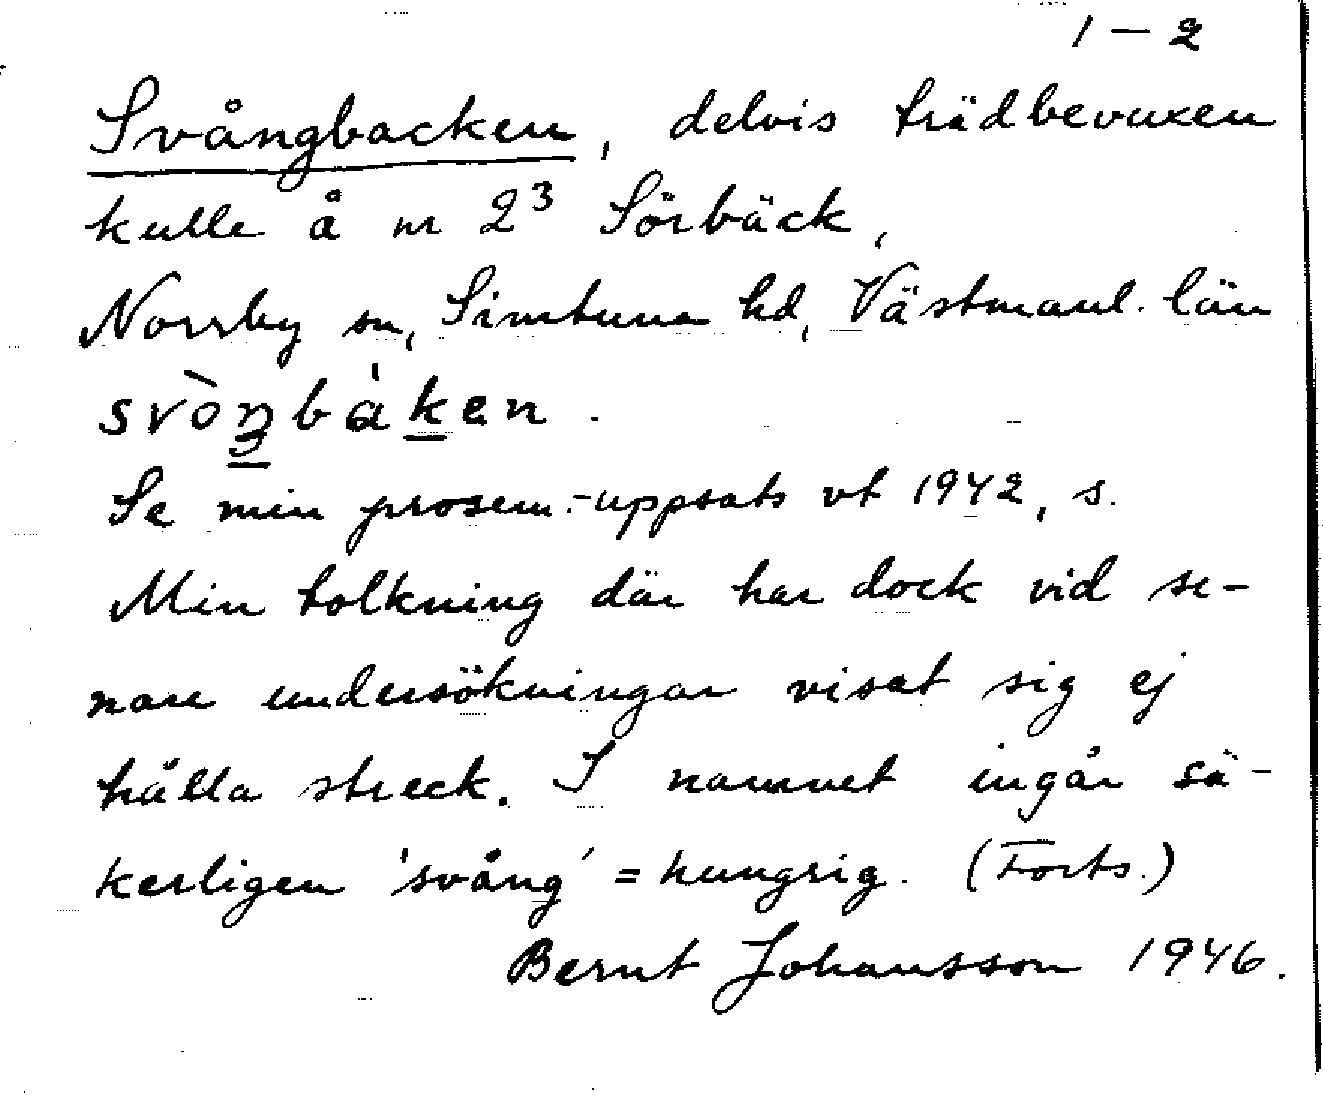 1 – 2
Svångbacken, delvis trädbevuxen
kulle å nr 2³ Sörbäck,
Norrby sn, Simtuna hd, Västmanl. län
svòŋbàken.
Se min prosem.-uppsats vt 1942, s.
Min tolkning där har dock vid se-
nare undersökningar visat sig ej
hålla streck. I namnet ingår sä-
kerligen 'svång' = hungrig. (Forts.)
Bernt Johansson 1946.